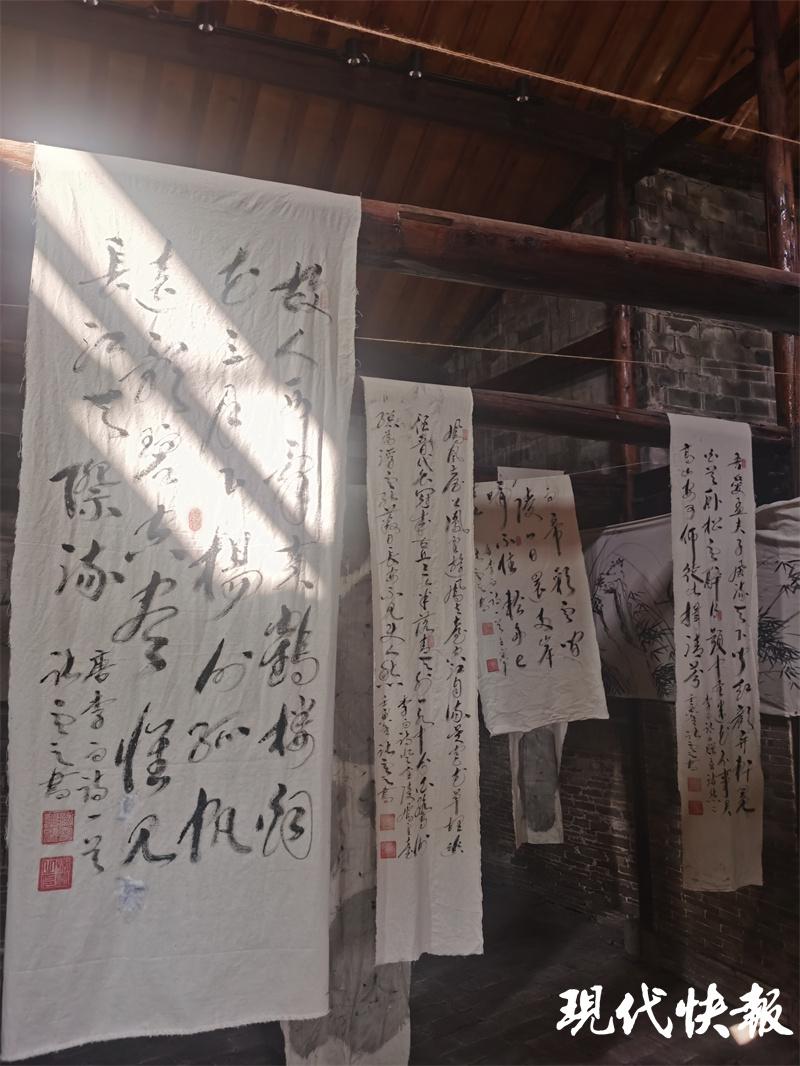 故人西辭黃鶴樓烟
花三月下楊州孤帆
遠影碧空盡惟見
長江天際流
唐李白詩一首
鳳凰臺上鳳凰遊鳳去臺空江自流吳宮花草埋幽
徑晉代衣冠成古丘三山半落青天外一水中分白鷺洲
總為浮雲能蔽日長安不見使人愁
李白詩登金陵鳳凰臺
白帝彩雲間
陵一日還兩岸
啼不住輕舟已
吾愛孟夫子風流天下聞紅顏棄軒冕
白首臥松雲醉月頻中聖迷花不事君
高山安可仰徒此揖清芬
現代快報